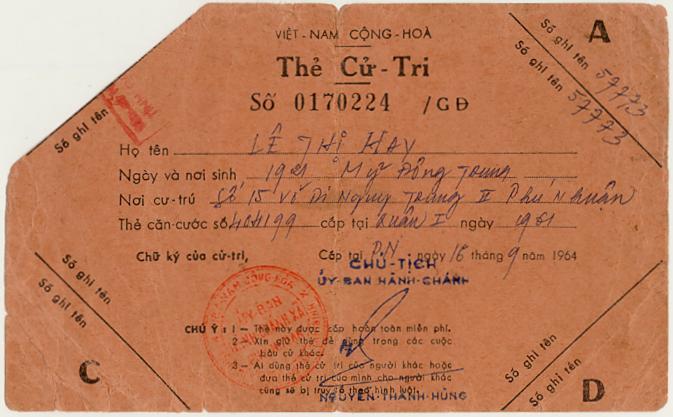 VIỆT-NAM CỘNG-HOÀ
A
Thẻ Cử-Tri
Số 0170224 /GĐ
Số ghi tên
Số ghi tên 57773
Số ghi tên 57773
Họ tên LÊ THỊ HAY
Ngày và nơi sinh 1921 Mỹ Đông Trung
Nơi cư-trú Số 15 Võ Di Nguy Trung II Phú Nhuận
Thẻ căn-cước số 404199 cấp tại Quân I ngày 1961
Chữ ký của cử-tri, Cấp tại P.N ngày 16 tháng 9 năm 1964
CHỦ-TỊCH
ỦY-BAN HÀNH-CHÁNH
ỦY-BAN
CHÚ Ý: 1 — Thẻ này được cấp hoàn toàn miễn phí.
2 — Xin giữ thẻ để dùng trong các cuộc
bầu cử khác.
3 — Ai dùng thẻ cử tri của người khác hoặc
đưa thẻ cử tri của mình cho người khác
cũng sẽ bị truy tố theo hình luật.
NGUYỄN-THÀNH-HÙNG
Số ghi tên
C
Số ghi tên
D